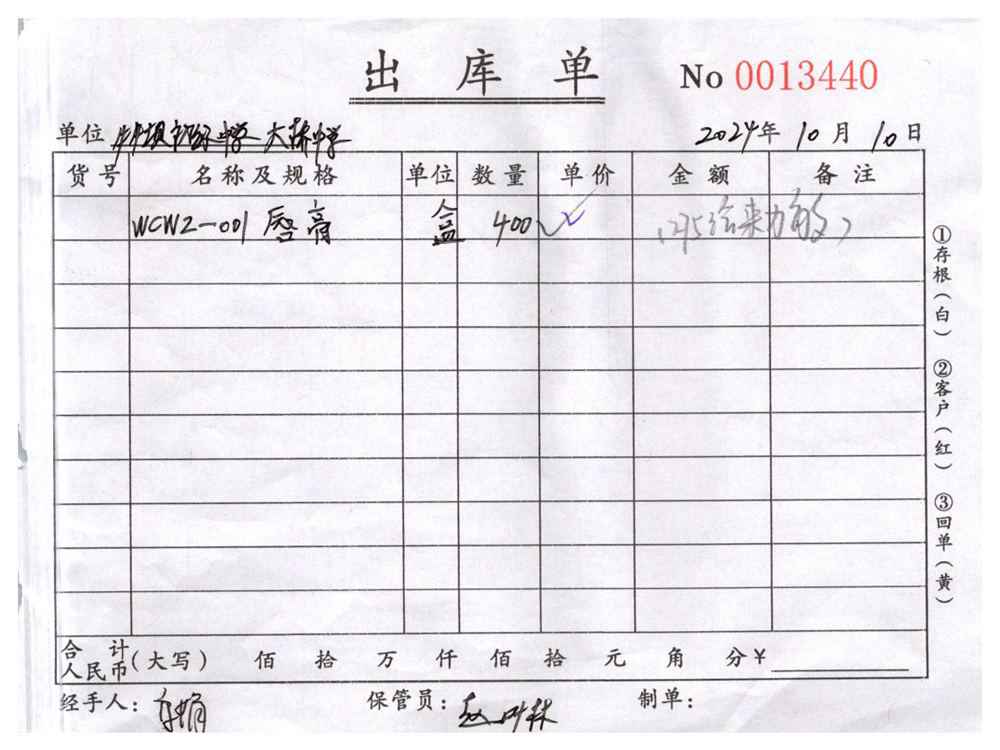 出库单 No 0013440
单位 大桥中学 2024年 10月 10日
货号 名称及规格 单位 数量 单价 金额 备注
WCWZ-001 唇膏 盒 400
①存根(白) ②客户(红) ③回单(黄)
合计
人民币(大写) 佰 拾 万 仟 佰 拾 元 角 分¥
经手人: 保管员: 赵叶林 制单: